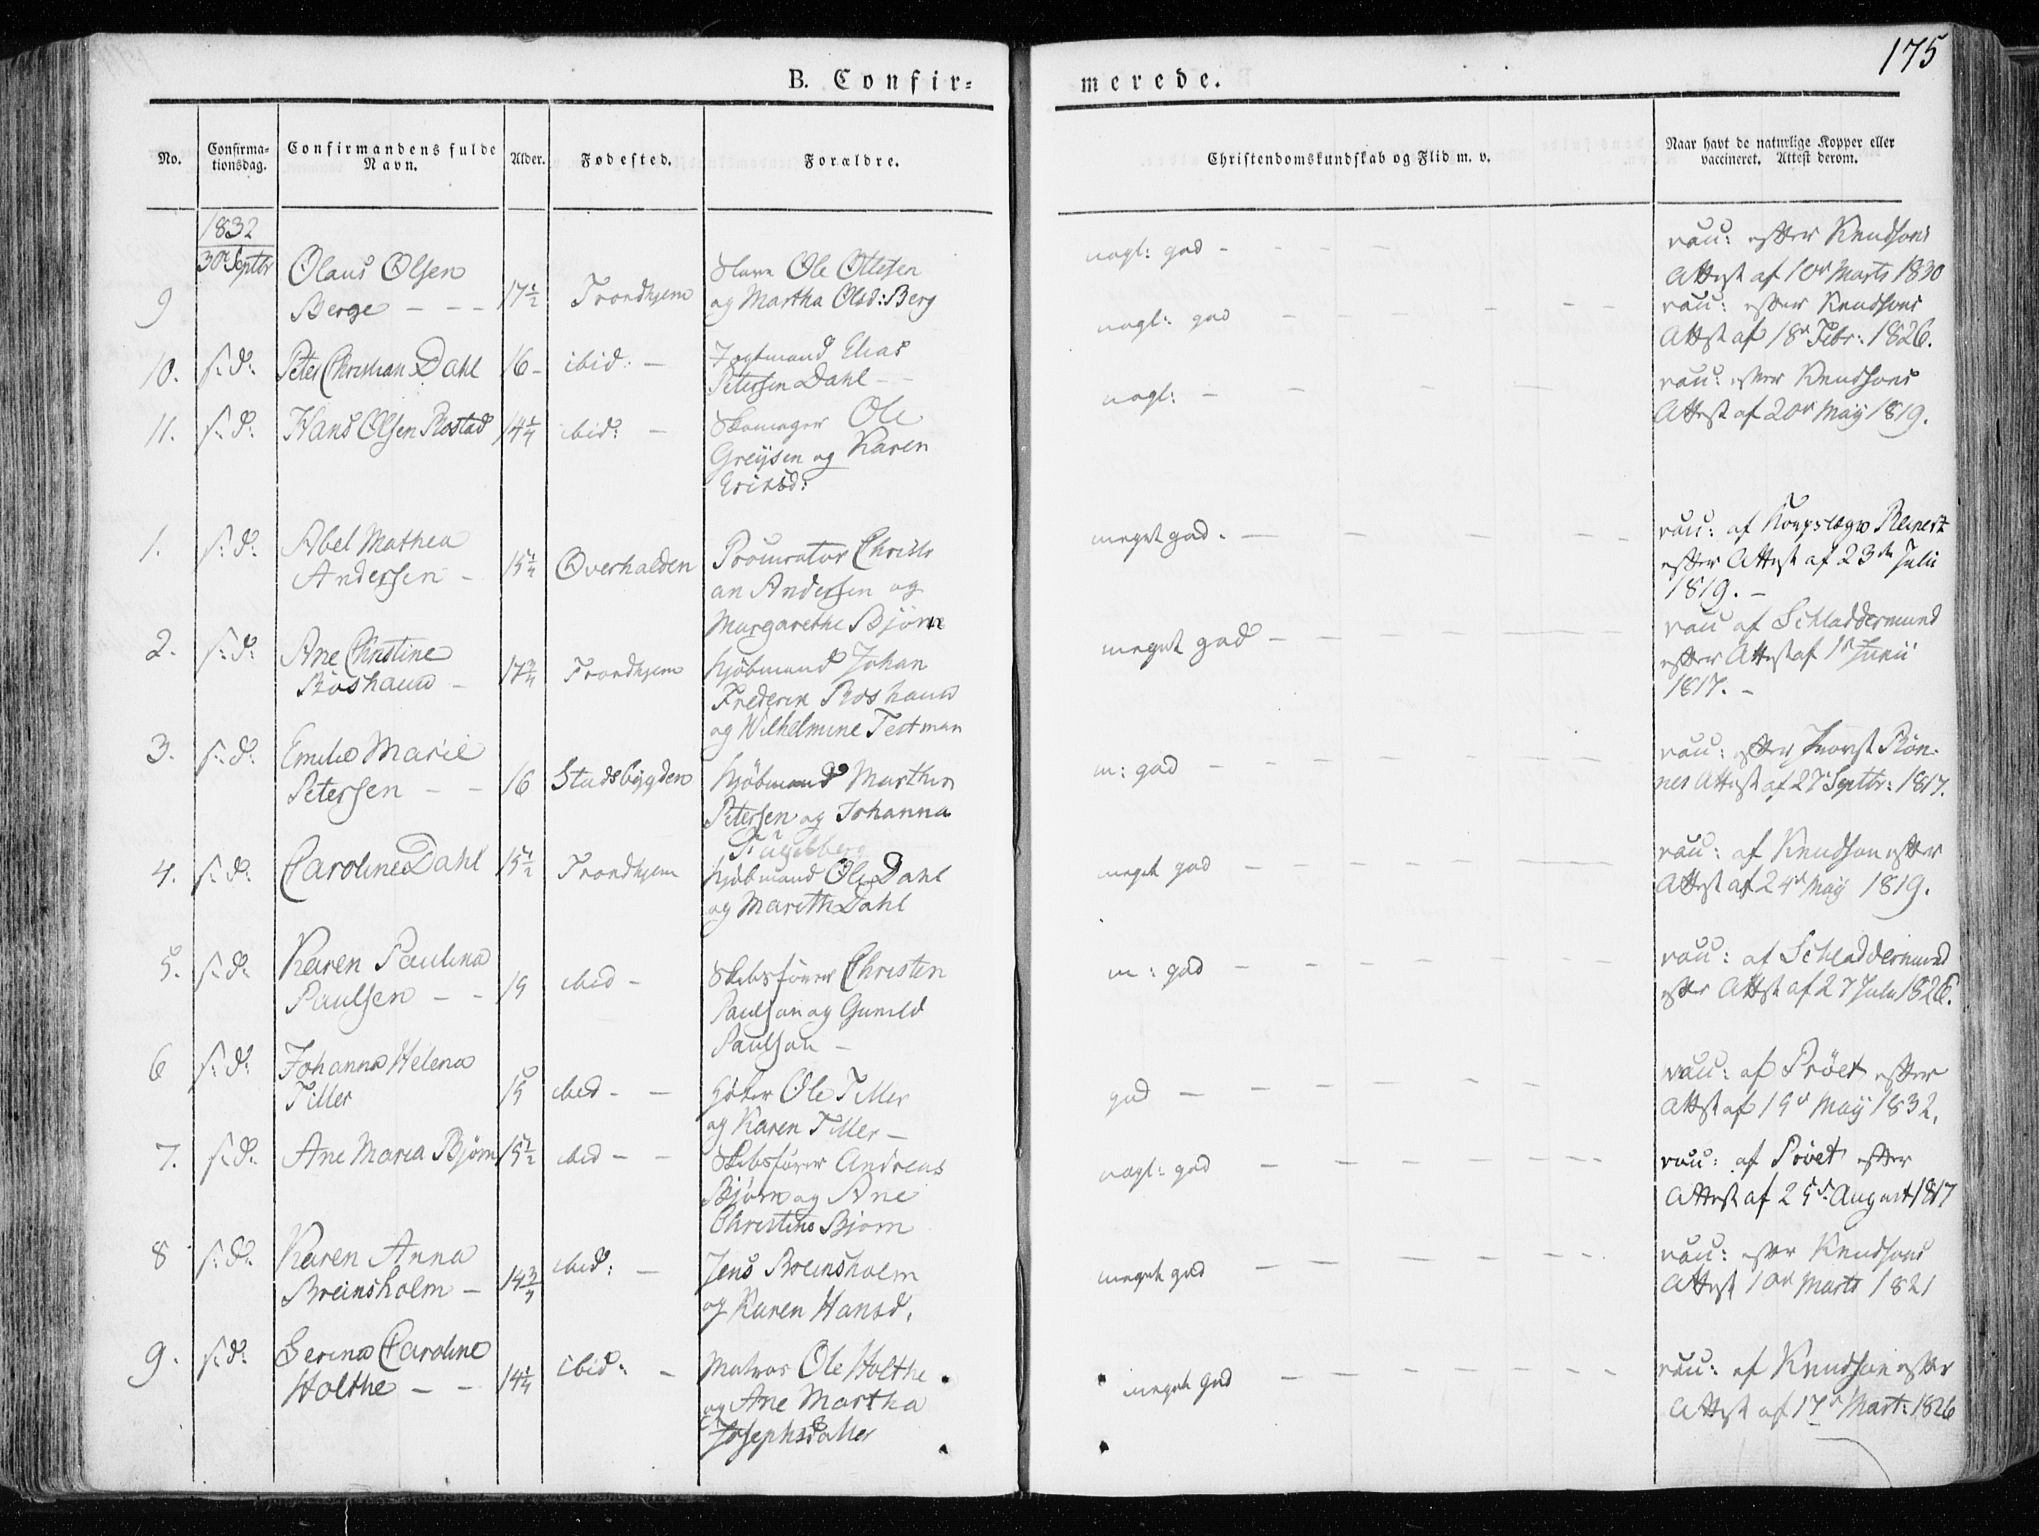 175
B. Confir=
merede.
No.
Confirma-
tionsdag.
Confirmandens fulde
Navn.
Alder.
Fødested.
Forældre.
Christendomskundskab og Flid m. v.
Naar havt de naturlige Kopper eller
vaccineret. Attest derom.
1832
30te Septbr
9
Olaus Olsen
Berge - - -
17 1/2
Trondhjem
Slave Ole Ottesen
og Martha Olsd: Berg
nogl: god -
vacc: efter Knudsons
Attest af 10de Marts 1830
10.
s. d.
Peter Christian Dahl
16 -
ibid: -
Jagtmand Elias
Petersen Dahl - -
nogl: god
vacc: efter Knudsons
Attest af 18de Febr: 1826.
11.
s. d.
Hans Olsen Rostad
14 1/4
ibid: -
Skomager Ole
Greijsen og Karen
Eriksd:
nogl: -
vacc: efter Knudsons
Attest af 20de Maij 1819.
1.
s. d.
Abel Mathea
Andersen -
15 1/4
Overhalden
Procurator Christi
an Andersen og
Margarethe Bjørn
meget god. -
vacc: af Korpslæge Reinert
efter Attest af 23de Julii
1819. -
2.
s. d.
Ane Christine
Roshauw -
17 3/4
Trondhjem
Kjøbmand Johan
Frederik Roshauw
og Wilhelmine Testman
meget god -
vacc af Schladdermund
efter Attest af 1ste Junii
1817. -
3.
s. d.
Emilie Marie
Petersen - -
16
Stadsbygden
Kjøbmand Marthin
Petersen og Johanna
m: god
vacc: efter Provst Røn-
nes Attest af 27de Septbr: 1817.
4.
s. d.
Caroline Dahl
15 1/2
Trondhjem
Kjøbmand Ole Dahl
og Marith Dahl
meget god
vacc: af Knudson efter
Attest af 24de Maij 1819.
5.
s. d.
Karen Paulina
Paulsen - -
15
ibid -
Skibsfører Christen
Paulson og Gunild
Paulson -
m: god
vacc: af Schladdermund
efter Attest af 27 Julii 1826.
6
s. d.
Johanna Helena
Tiller
15
ibid - -
Ole Tiller
og Karen Tiller -
god -
vacc: af Prøet efter
Attest af 19de Maij 1832.
7.
s. d.
Ane Maria Bjørn
15 1/2
ibid - -
Skibsfører Andreas
Bjørn og Ane
Christine Bjørn
nogl: god
vacc: af Prøet efter
Attest af 25de August 1817
8
s. d.
Karen Anna
Breinsholm -
14 3/4
ibid: -
Jens Breinsholm
og Karen Hansd.
meget god
vacc: efter Knudsons
Attest 10de Marts 1821
9.
s. d.
Serina Caroline
Holthe - -
14 1/4
ibid: -
Matros Ole Holthe
og Ane Martha
Josephsdatter
meget god
vacc: af Knudson efter
Attest af 17de Mart: 1826